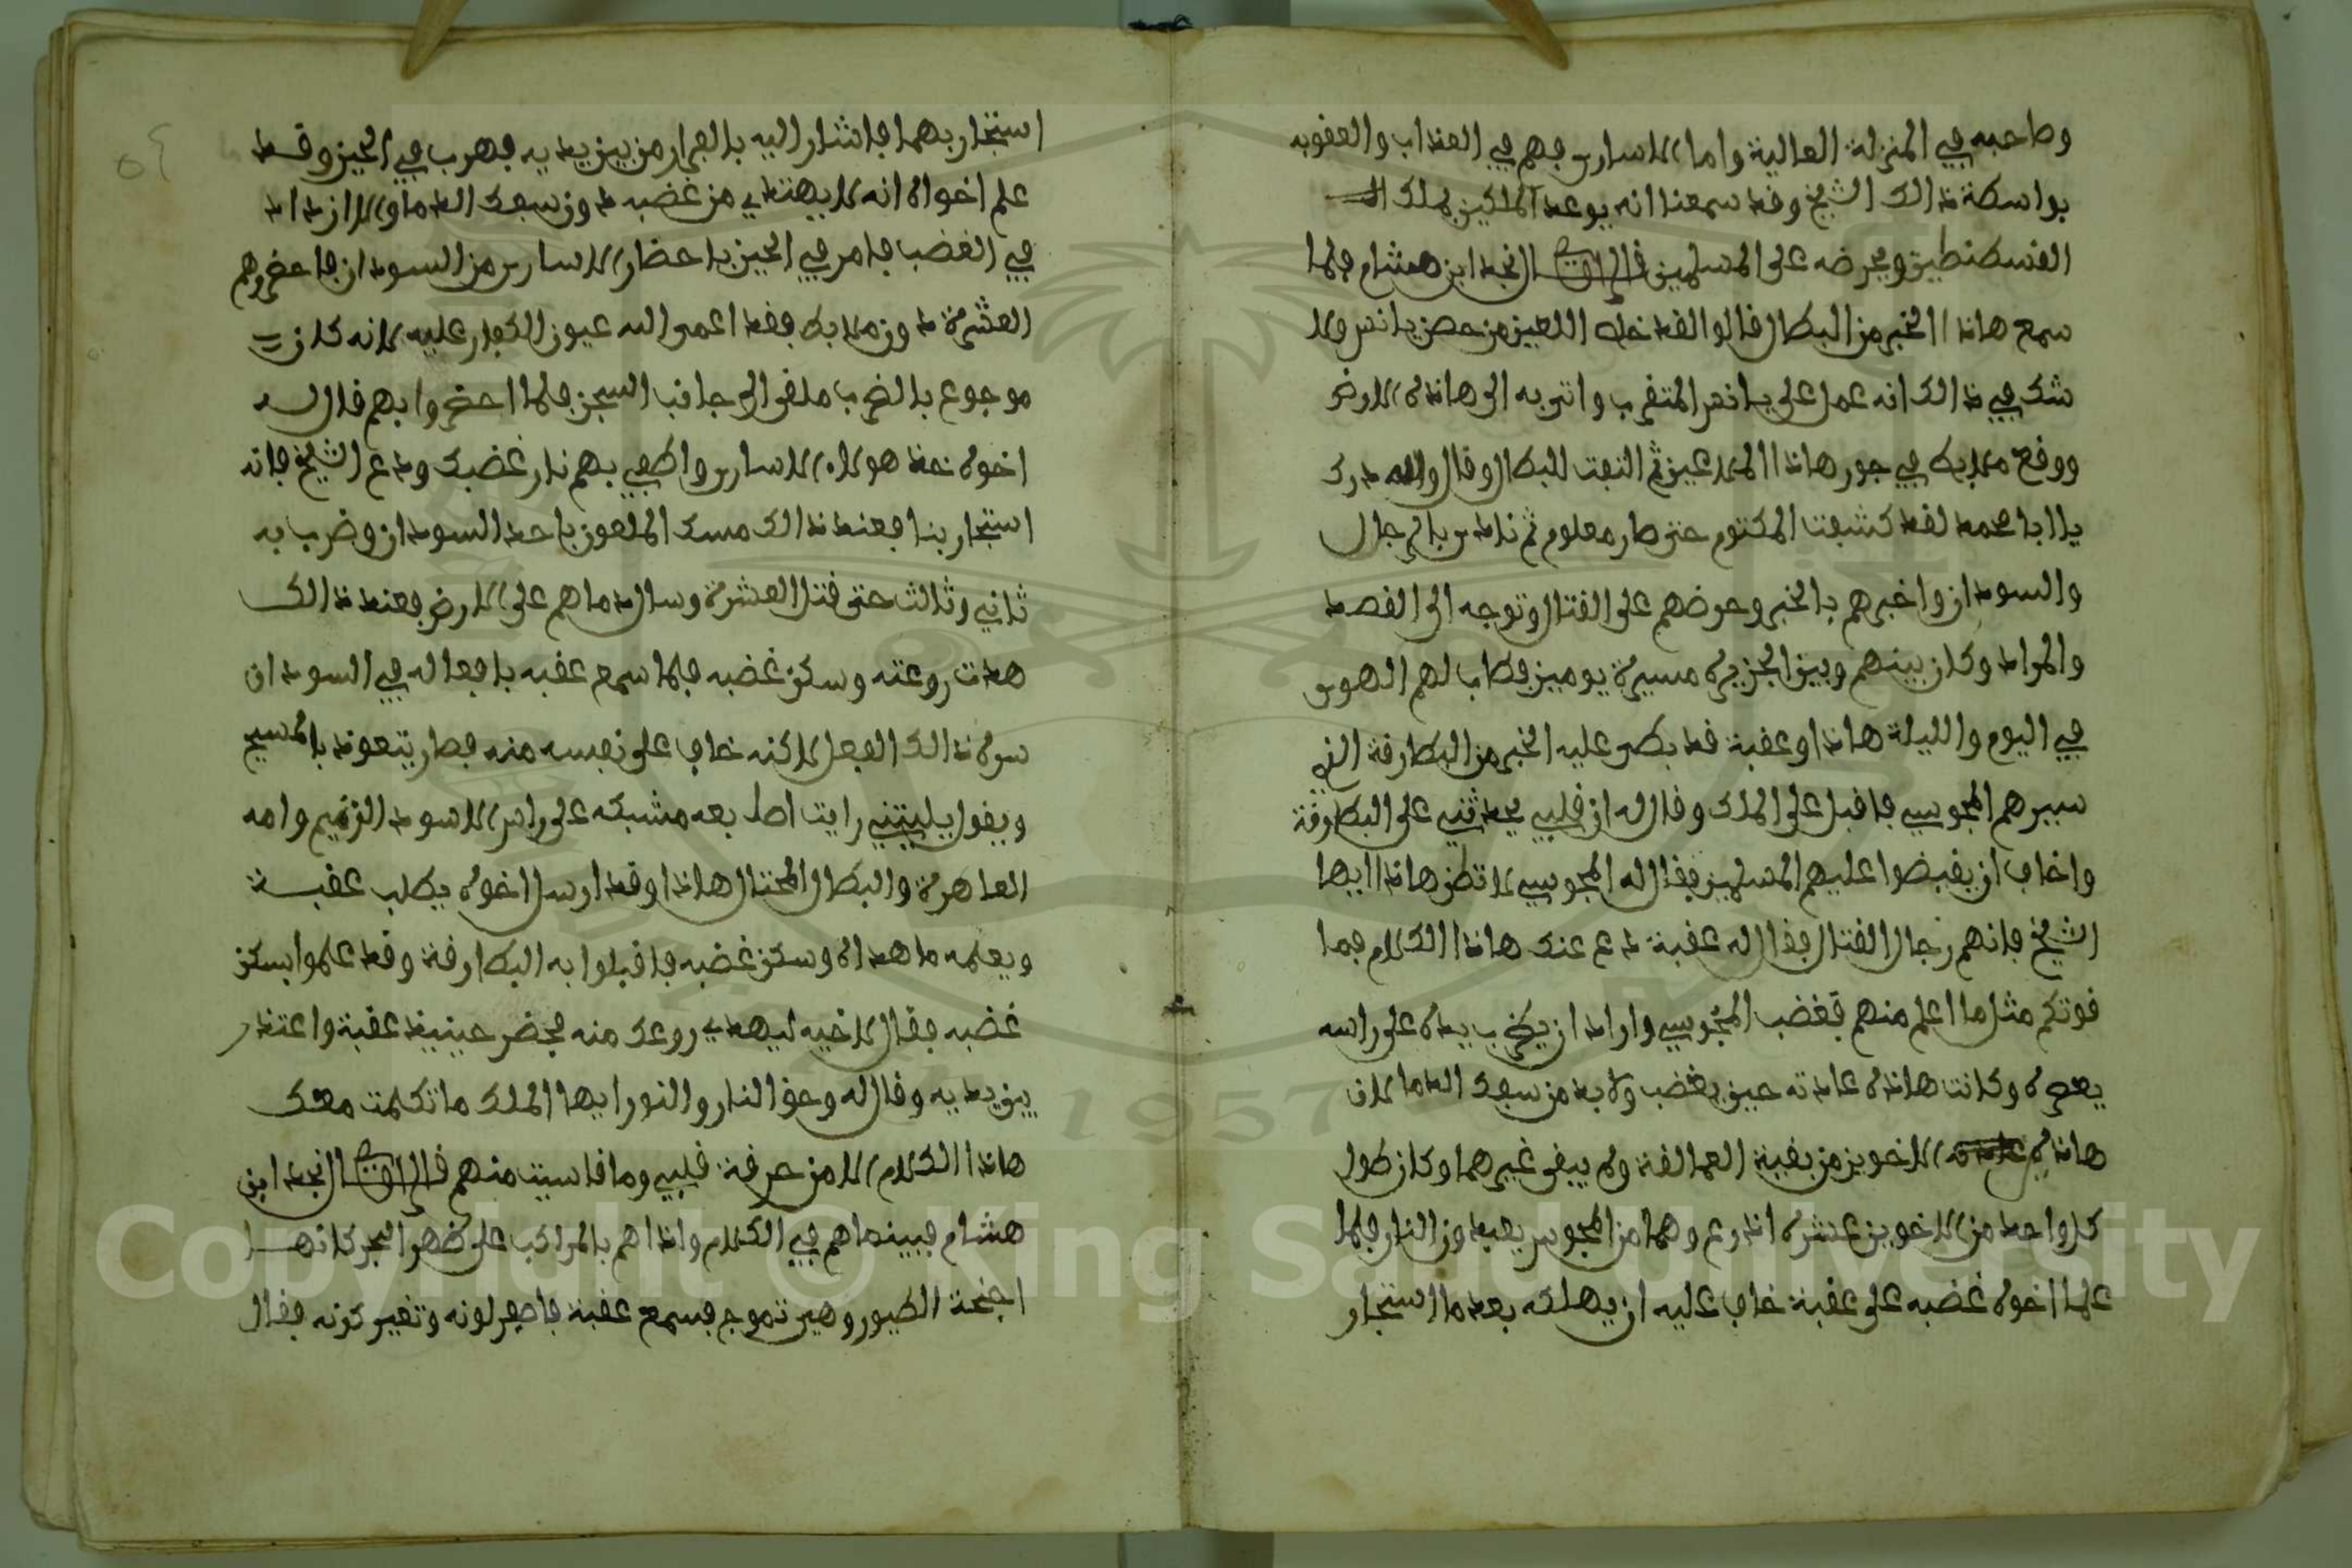 وصاحبه في المنزلة العالية واما الاسارى فهم في العذاب والعقوبه
بواسطة ذالك الشيخ وقد سمعنا انه يوعد الملكين بملك
القسطنطين ويحرضه على المسلمين قال الراوي قال نجد ابن هشام فلما
سمع هاذا الخبر من البطال قالوا لقد خلص اللعين من حصن يانس ولا
شك في ذالك انه عمل على يانس المتقرب واتى به الى هاذه الارض
ووقع ملابط في جور هاذا الملاعين ثم التفت للبطال وقال والله درك
يا ابا محمد لقد كشفت المكتوم حتى صار معلوم ثم نادى بالرجال
والسودان واخبرهم بالخبر وحرضهم على القتال وتوجه الى القصد
والمراد وكان بينهم وبين الجزيره مسيرة يومين فطاب لهم الهوى
في اليوم والليلة هاذا وعقبة قد بطى عليه الخبر من البطارقة الذي
سيرهم المجوسي فاقبل على الملك وقال له ان قلبي يحدثني على البطارقة
واخاف ان يقبضوا عليهم المسلمين فقال له المجوسي لا تظن هاذا ايها
الشيخ فانهم رجال القتال فقال له عقبة دع عنك هاذا الكلام فما
قوتكم مثل ما اعلم منهم فغضب المجوسي واراد ان يضرب يده على راسه
يعصره وكانت هاذه عادته حين يغضب ولا بد من سفك الدما لان
هاذه الاخوين من بقية العمالقة ولم يبقى غيرهما وكان طول
كل واحد من الاخوين عشره اذرع وهما من المجوس يعبدون النار فلما
علما اخوه غضبه على عقبة خاف عليه ان يهلكه بعد ما استجار
استجار بهما فاشار اليه بالفرار من بين يديه فهرب في الحين وقد
علم اخواه انه لا يهتدي من غضبه دون سفك الدما والا ازداد
في الغضب فامر في الحين باحضار الاسارى من السودان فاحضروهم
العشرة دون ملابط فقد اعمى الله عيون الكفار عليه لانه كان
موجوع بالضرب ملقى الى جانب السجن فلما احضروا بهم قال له
اخوه خذ هولاء الاسارى واطفي بهم نار غضبك ودع الشيخ فانه
استجار بنا فعند ذالك مسك الملعون باحد السودان وضرب به
ثاني وثالث حتى قتل العشرة وسال دماهم على الارض فعند ذالك
هدت روعته وسكن غضبه فلما سمع عقبه بافعاله في السودان
سره ذالك الفعل لاكنه خاف على نفسه منه فصار يتعوذ بالمسيح
ويقول يليتني رايت اصابعه مشبكه على راس الاسود الزنيم وامه
العاهرة والبطال المحتال هاذا وقد ارسل اخوه يطلب عقبة
ويعلمه ما هداه وسكن غضبه فاقبلوا به البطارقة وقد علموا بسكن
غضبه فقال لاخيه ليهدي روعك منه فحضر حينيذ عقبة واعتذر
بين يديه وقال له وحق النار والنور ايها الملك ما تكلمت معك
هاذا الكلام الا من حرقة قلبي وما قاسيت منهم قال الراوي قال نجد ابن
هشام فبينما هم في الكلام واذا هم بالمراكب على ظهر البحر كانهـا
اجنحة الطيور وهي تموج فسمع عقبة فاصفر لونه وتغير كونه فقال
Copyright © King Saud University
1957